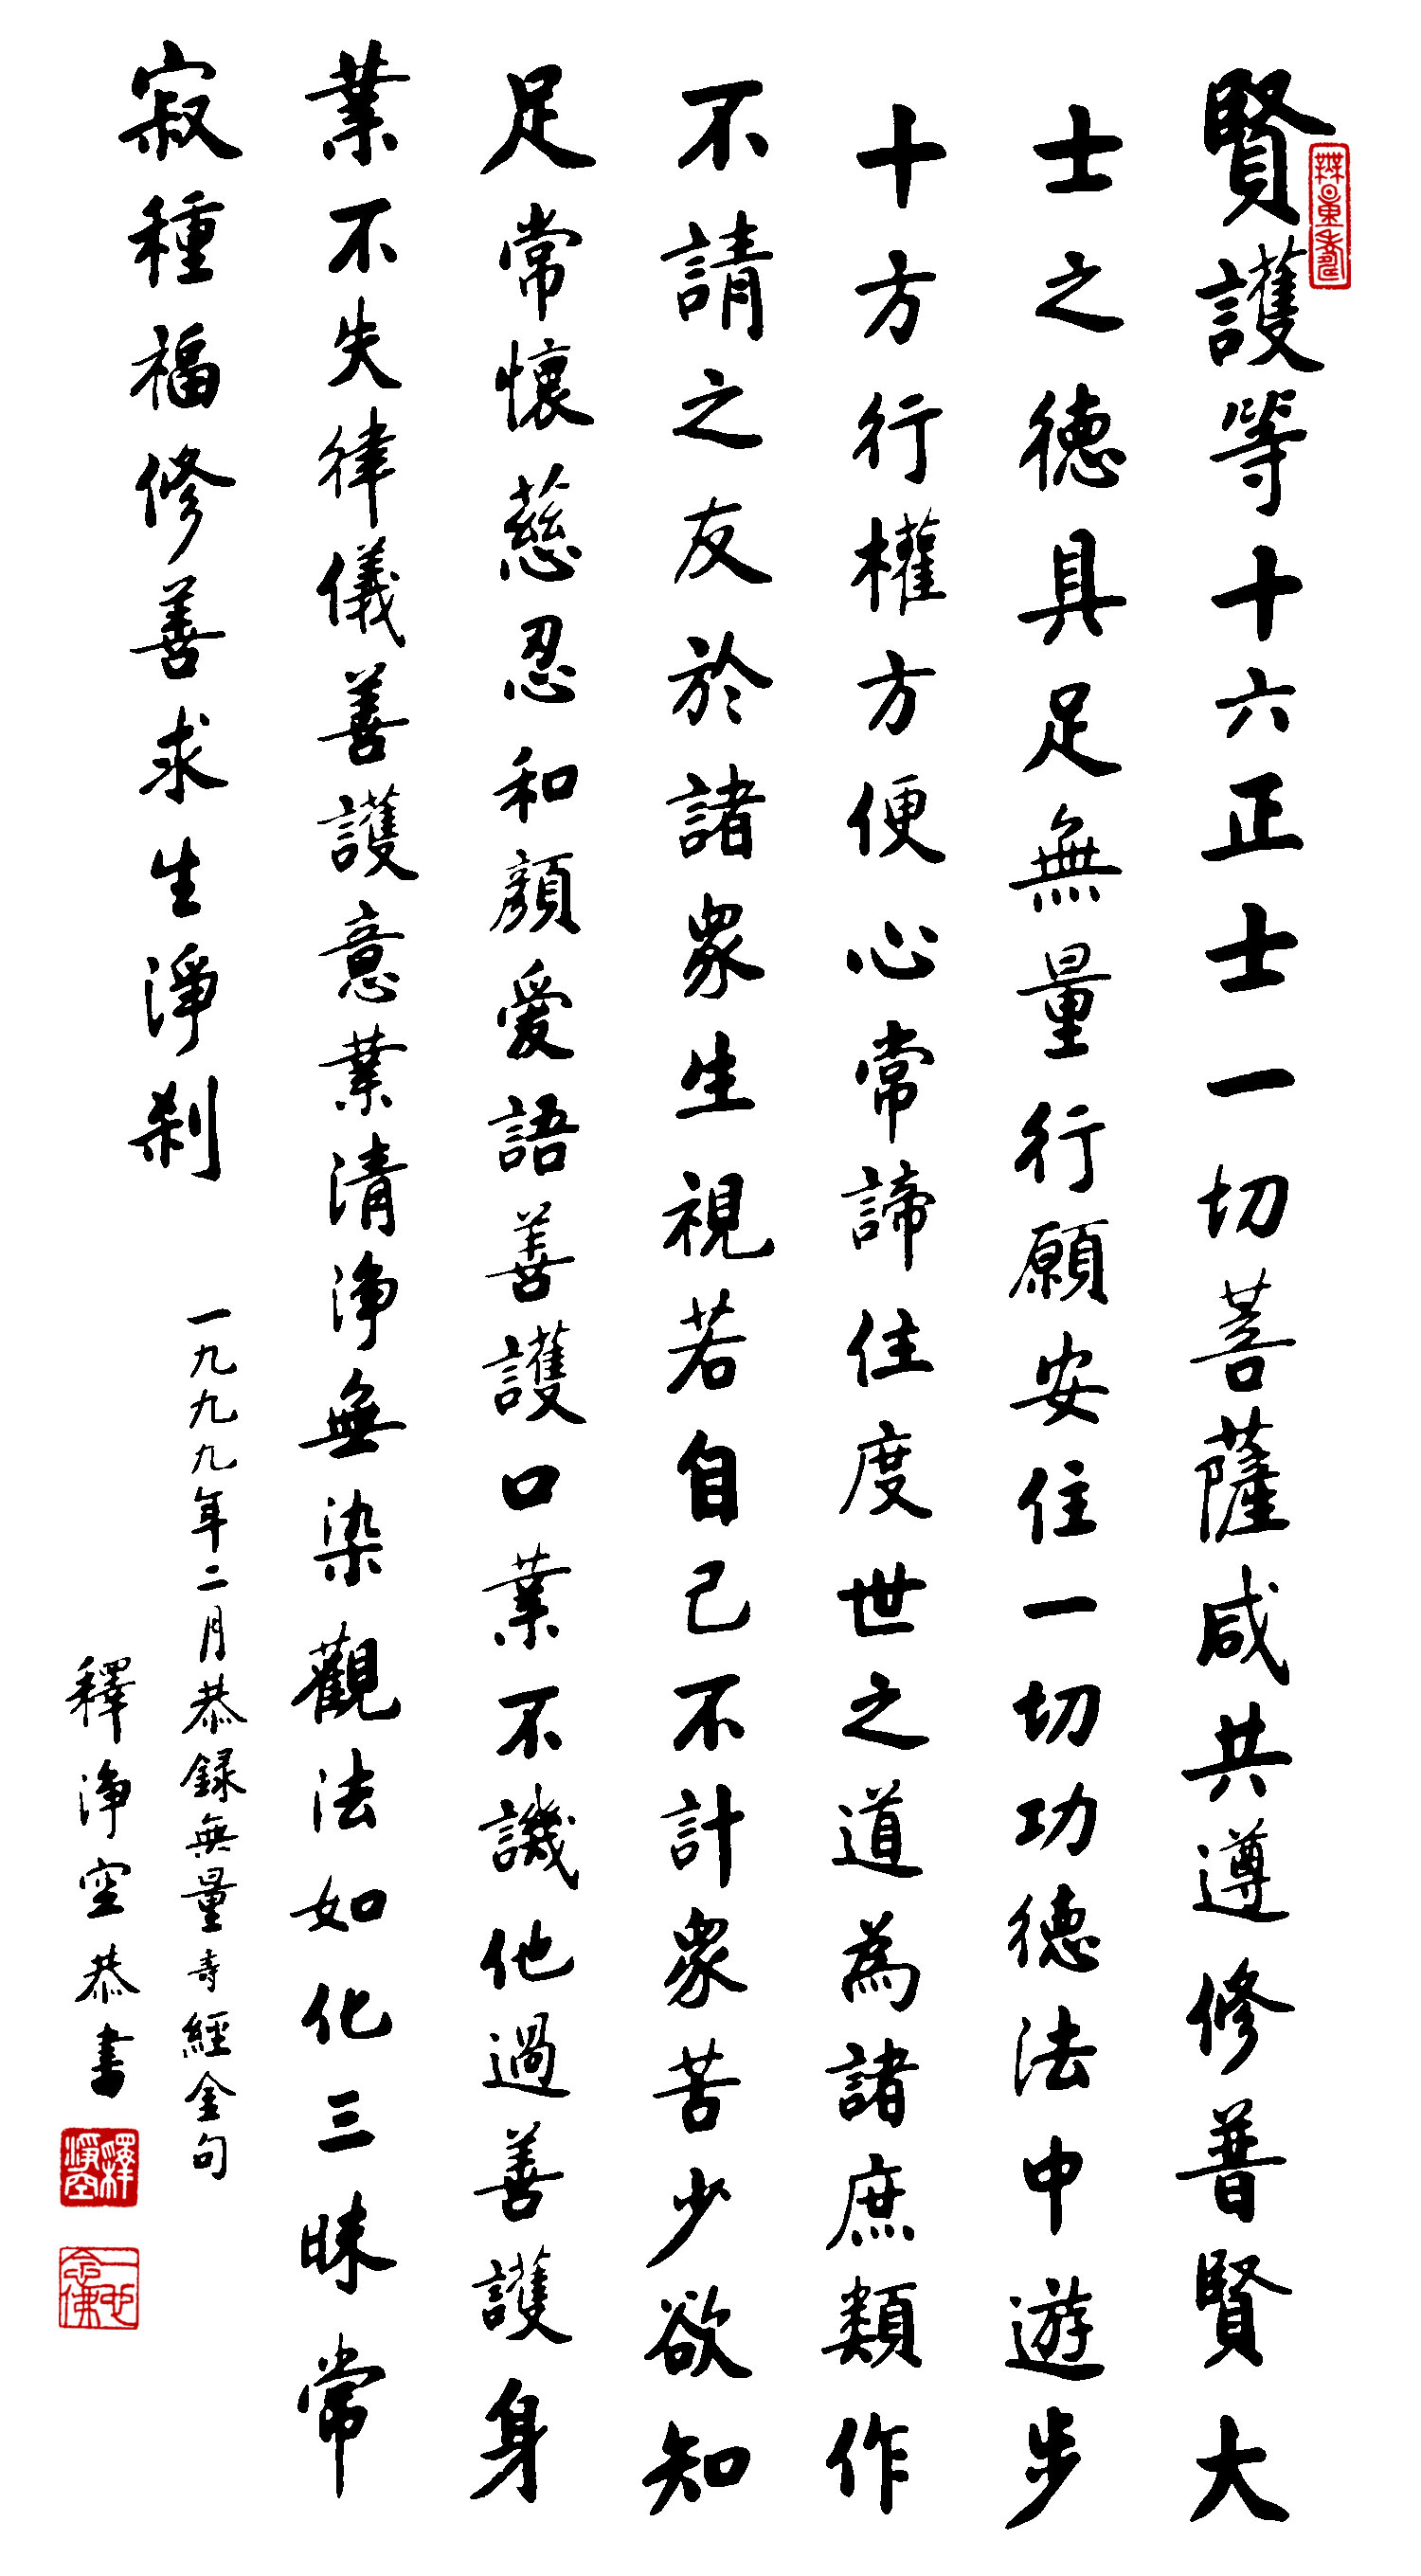 賢護等十六正士一切菩薩咸共遵修普賢大
士之德具足無量行願安住一切功德法中遊步
十方行權方便心常諦住度世之道為諸庶類作
不請之友於諸眾生視若自己不計眾苦少欲知
足常懷慈忍和顏愛語善護口業不譏他過善護身
業不失律儀善護意業清淨無染觀法如化三昧常
寂種福修善求生淨剎
一九九九年二月恭録無量寿經金句
釋淨空恭書
釋淨空
一心念佛